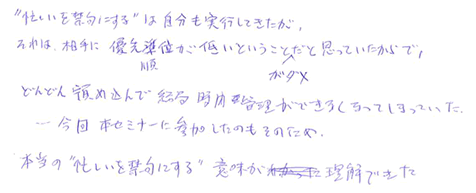 "忙しいを禁句にする"は自分も実行してきたが、
それは、相手に優先準位が低いということだと思っていたからで、
順 がダメ
どんどん詰め込んで結局時間管理ができなくなってしまっていた。
ー今回本セミナーに参加したのもそのため。
本当の"忙しいを禁句にする"意味が理解できた